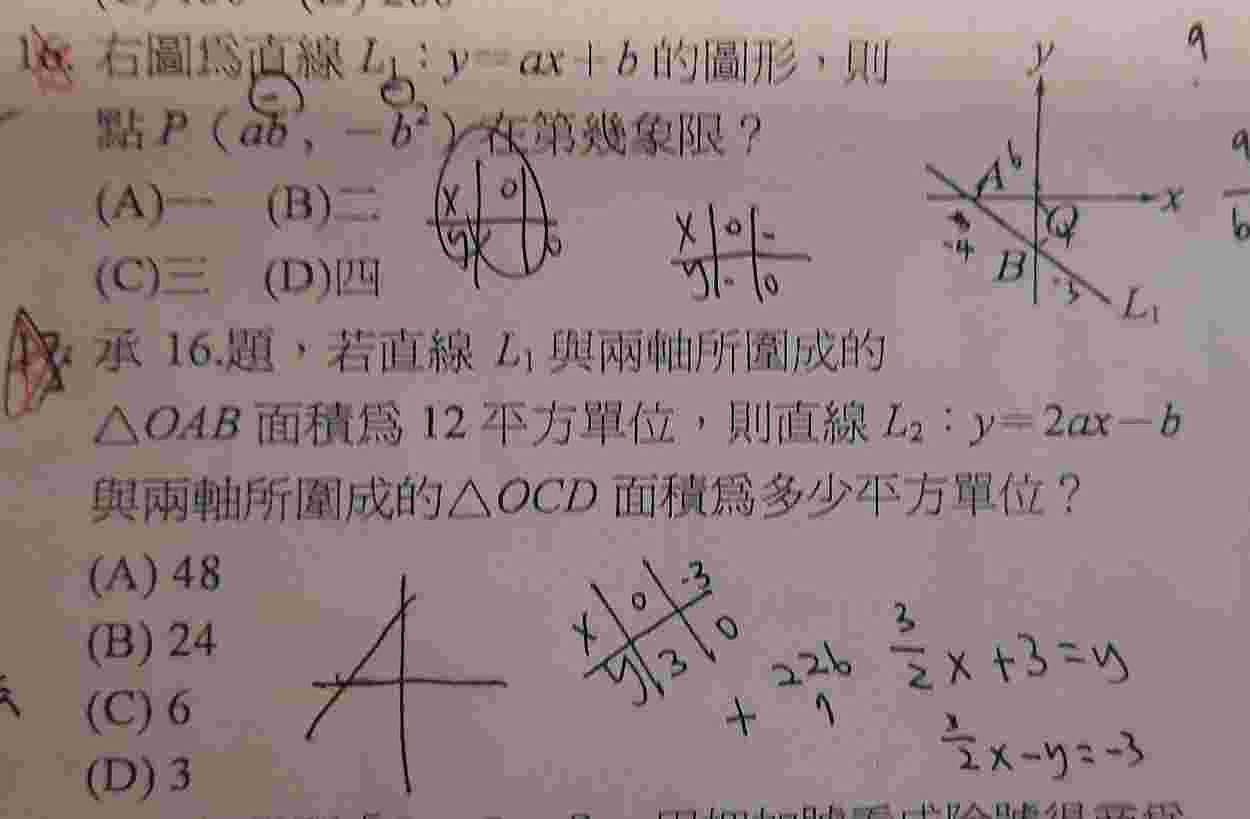 右圖為直線 L₁：y=ax+b 的圖形，則
點 P（ab，-b²）在第幾象限？
(A)一 (B)二
(C)三 (D)四
y
x
A
b
Q
B
-4
-3
L₁
x 0
y
x 0 -
y - 0
承 16.題，若直線 L₁ 與兩軸所圍成的
△OAB 面積為 12 平方單位，則直線 L₂：y=2ax-b
與兩軸所圍成的△OCD 面積為多少平方單位？
(A) 48
(B) 24
(C) 6
(D) 3
x 0 -3
y 3 0
3/2 x + 3 = y
x - y = -3